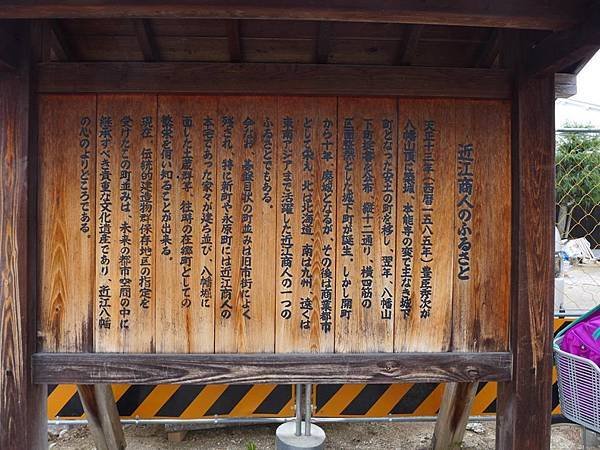 近江商人のふるさと
天正十三年(西暦一五八五年)豊臣秀次が
八幡山頂に築城、本能寺の変で主なき城下
町となった安土の町を移し、翌年、八幡山
下町掟書を公布、縦十二通り、横四筋の
区画整然とした城下町が誕生。しかし開町
から十年、廃城となるが、その後は商業都市
として栄え、北は北海道、南は九州、遠くは
東南アジアまで活躍した近江商人の一つの
ふるさとでもある。
今なお、碁盤目状の町並みは旧市街によく
残され、特に新町や永原町には近江商人の
本宅であった家々が建ち並び、八幡堀に
面した土蔵群等、往時の在郷町としての
繁栄を偲い知ることが出来る。
現在、伝統的建造物群保存地区の指定を
受けたこの町並みは、未来の都市空間の中に
継承すべき貴重な文化遺産であり、近江八幡
の心のよりどころである。